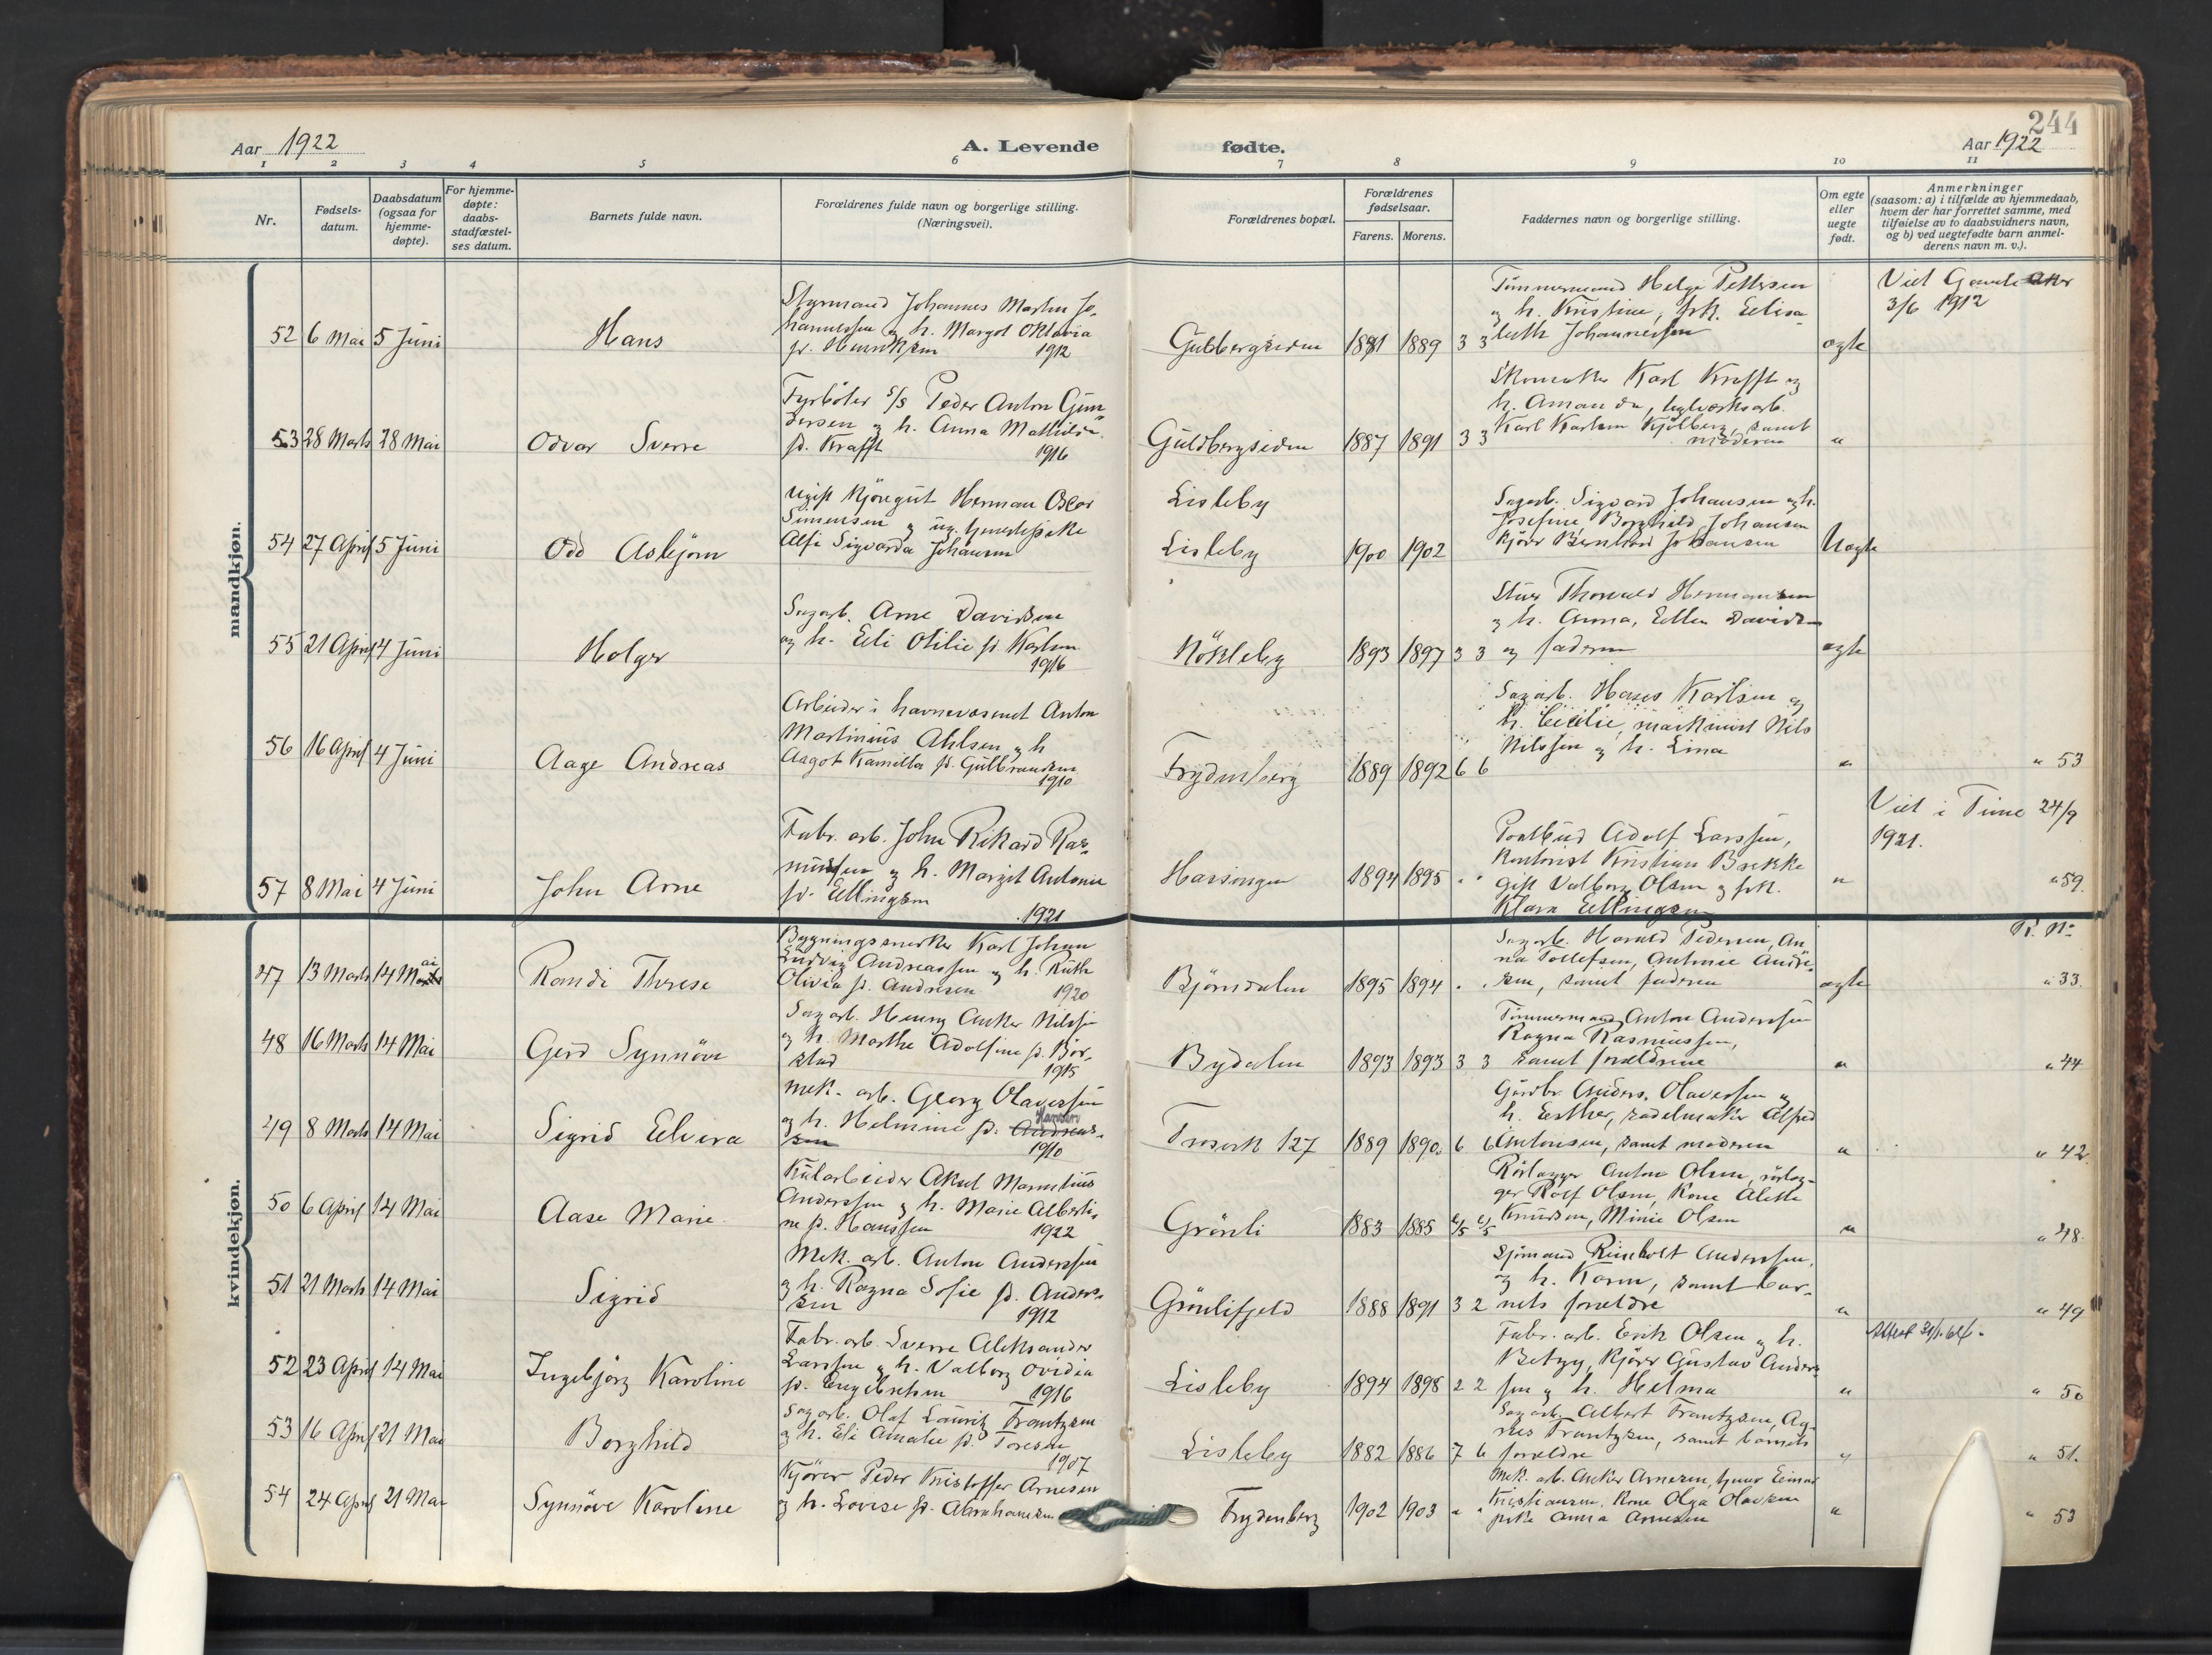 244
Aar 1922
A. Levende
fødte.
Aar 1922
1 2 3 4 5 6 7 8 9 10 11
Nr.
Fødsels-
datum.
Daabsdatum
(ogsaa for
hjemme-
døpte).
For hjemme-
døpte:
daabs-
stadfæstel-
ses datum.
Barnets fulde navn.
Forældrenes fulde navn og borgerlige stilling.
(Næringsvei).
Forældrenes bopæl.
Forældrenes
fødselsaar.
Farens. Morens.
Faddernes navn og borgerlige stilling.
Om egte
eller
uegte
født.
Anmerkninger
(saasom: a) i tilfælde av hjemmedaab,
hvem der har forrettet samme, med
tilføielse av to daabsvidners navn,
og b) ved uegtefødte barn anmel-
derens navn m. v.).
mandkjøn.
52 6 Mai 5 Juni
Hans
Styrmand Johannes Martin Jo-
hannessen og h. Margot Oktavia
f. Henriksen 1912
Gulbergsiden 1881 1889 3 3
Tømmermand Helge Pettersen
og h. Kristine, frk. Elisa-
beth Johannessen
ægte
Viet Gamle Aker
3/6 1912
53 28 Marts 28 Mai
Odvar Sverre
Fyrbøter s/s Peder Anton Gun-
dersen og h. Anna Mathilde
fd. Krafft 1916
Guldbergsiden 1887 1891 3 3
Skomaker Karl Krafft og
h. Amanda, teglverksarb.
Karl Karlsen Kjølberg, samt
moderen
"
54 27 April 5 Juni
Odd Asbjørn
Ugift kjøregut Herman Oscar
Simensen og ug. tjenestepike
Alfi Sigvarda Johansen
Lisleby
Lisleby 1900 1902
Sagarb. Sigvard Johansen og h.
Josefine, Borghild Johansen
kjører Bernhard Johansen
Uægte
55 21 April 4 Juni
Holger
Sagarb. Arne Davidsen
og h. Eli Otilie fd. Karlsen
1916
Nökleby 1893 1897 3 3
Stuer Thorvald Hermansen
og h. Anna, Ellen Davidsen
og faderen
ægte
56 16 April 4 Juni
Aage Andreas
Arbeider i havnevæsenet Anton
Martinius Ahlsen og h
Aagot Kamilla fd. Gulbrandsen
1910
Frydenberg 1889 1892 6 6
Sagarb. Hans Karlsen og
h. Cecilie, maskinist Nils
Nilssen og h. Lina
" " 53
57 8 Mai 4 Juni
John Arne
Fabr. arb. John Rikard Ras-
mussen og h. Margit Antonie
fd. Ellingsen
1921
Hassingen 1894 1895 " "
Postbud Adolf Larssen,
kontorist Kristian Brekke
gift Valborg Olsen og frk.
Klara Ellingsen
"
Viet i Time 24/9
1921.
" 59.
kvindekjøn.
47 13 Marts 14 Mai
Randi Therese
Bygningssnekker Karl Johan
Ludvig Andreassen og h. Ruth
Olivia fd. Andresen 1920
Björndalen 1895 1894 " "
Sagarb. Harald Pedersen, An-
na Tollefsen, Antonie Andre-
sen, samt faderen
ægte
" 33.
48 16 Marts 14 Mai
Gerd Synnöve
Sagarb. Henry Anker Nilssen
og h. Marthe Adolfine fd. Bør-
stad
1915
Bydalen 1893 1893 3 3
Tømmermand Anton Anderssen
Ragna Rasmussen,
samt forældrene
" " 44
49 8 Marts 14 Mai
Sigrid Elvira
Mek. arb. Georg Olaverssen
og h. Helmine fd. Andreas-
sen Hansen
1910
Trosvik 127 1889 1890 6 6
Gardbr. Anders Olaverssen og
h. Esther, sadelmaker Alfred
Antonsen, samt moderen
" " 42
50 6 April 14 Mai
Aase Marie
Kularbeider Aksel Marentius
Anderssen og h. Marie Alberti-
ne fd. Hanssen 1922
Grönli 1883 1885
Rørlægger Anton Olsen, rørlæg-
ger Rolf Olsen, Kone Alette
Knudsen, Minie Olsen
" " 48.
51 21 Marts 14 Mai
Sigrid
Mek. arb. Anton Anderssen
og h. Ragna Sofie fd. Ander-
sen 1912
Grönlifjeld 1888 1891 3 2
Sjømand Reinholt Anderssen,
og h. Karen, samt bar-
nets forældre
" " 49
52 23 April 14 Mai
Ingebjørg Karoline
Fabr. arb. Sverre Aleksander
Larssen og h. Valborg Ovidia
fd. Engebretsen 1916
Lisleby 1894 1898 2 2
Fabr. arb. Erik Olsen og h.
Betzy, kjører Gustav Anders-
sen og h. Helma
" " 50
53 16 April 21 Mai
Borghild
Sagarb. Olaf Lauritz Frantzsen
og h. Eli Amalie fd. Toresen
1907
Lisleby 1882 1886 7 6
Sagarb. Albert Frantzsen, Ag-
nes Frantzsen, samt barnets
forældre
" " 51.
54 24 April 21 Mai
Synnöve Karoline
Kjører Peder Kristoffer Arnesen
og h. Lovise fd. Abrahamsen
Frydenberg 1902 1903 " "
Mek. arb. Anker Arnesen, Einar
Kristiansen, Kone Olga Olavsen
pike Anna Arnesen
" " 53